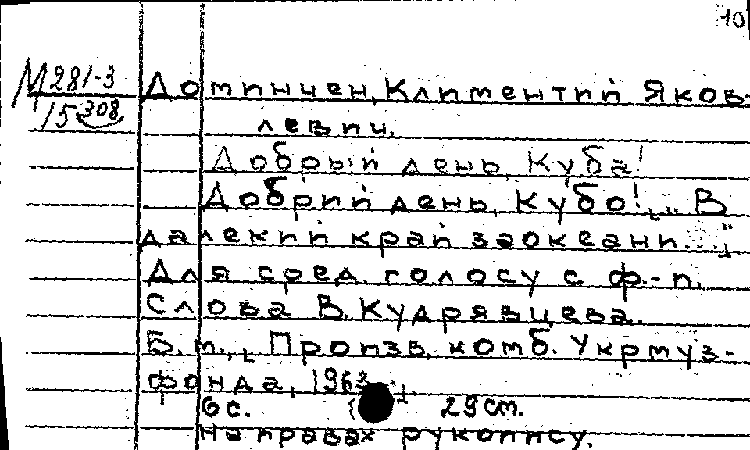 10
М281-3
15308
Доминчен, Климентий Яков-
левич.
Добрый день, Куба!
Добрий день, Кубо! [„В
далекий край заокеани..."]
Для сред. голосу с ф-п.
Слова В. Кудрявцева.
Б. м., [Произв. комб. Укрмуз-
фонда, 1963.]
6 с. 29 см.
На правах рукопису.